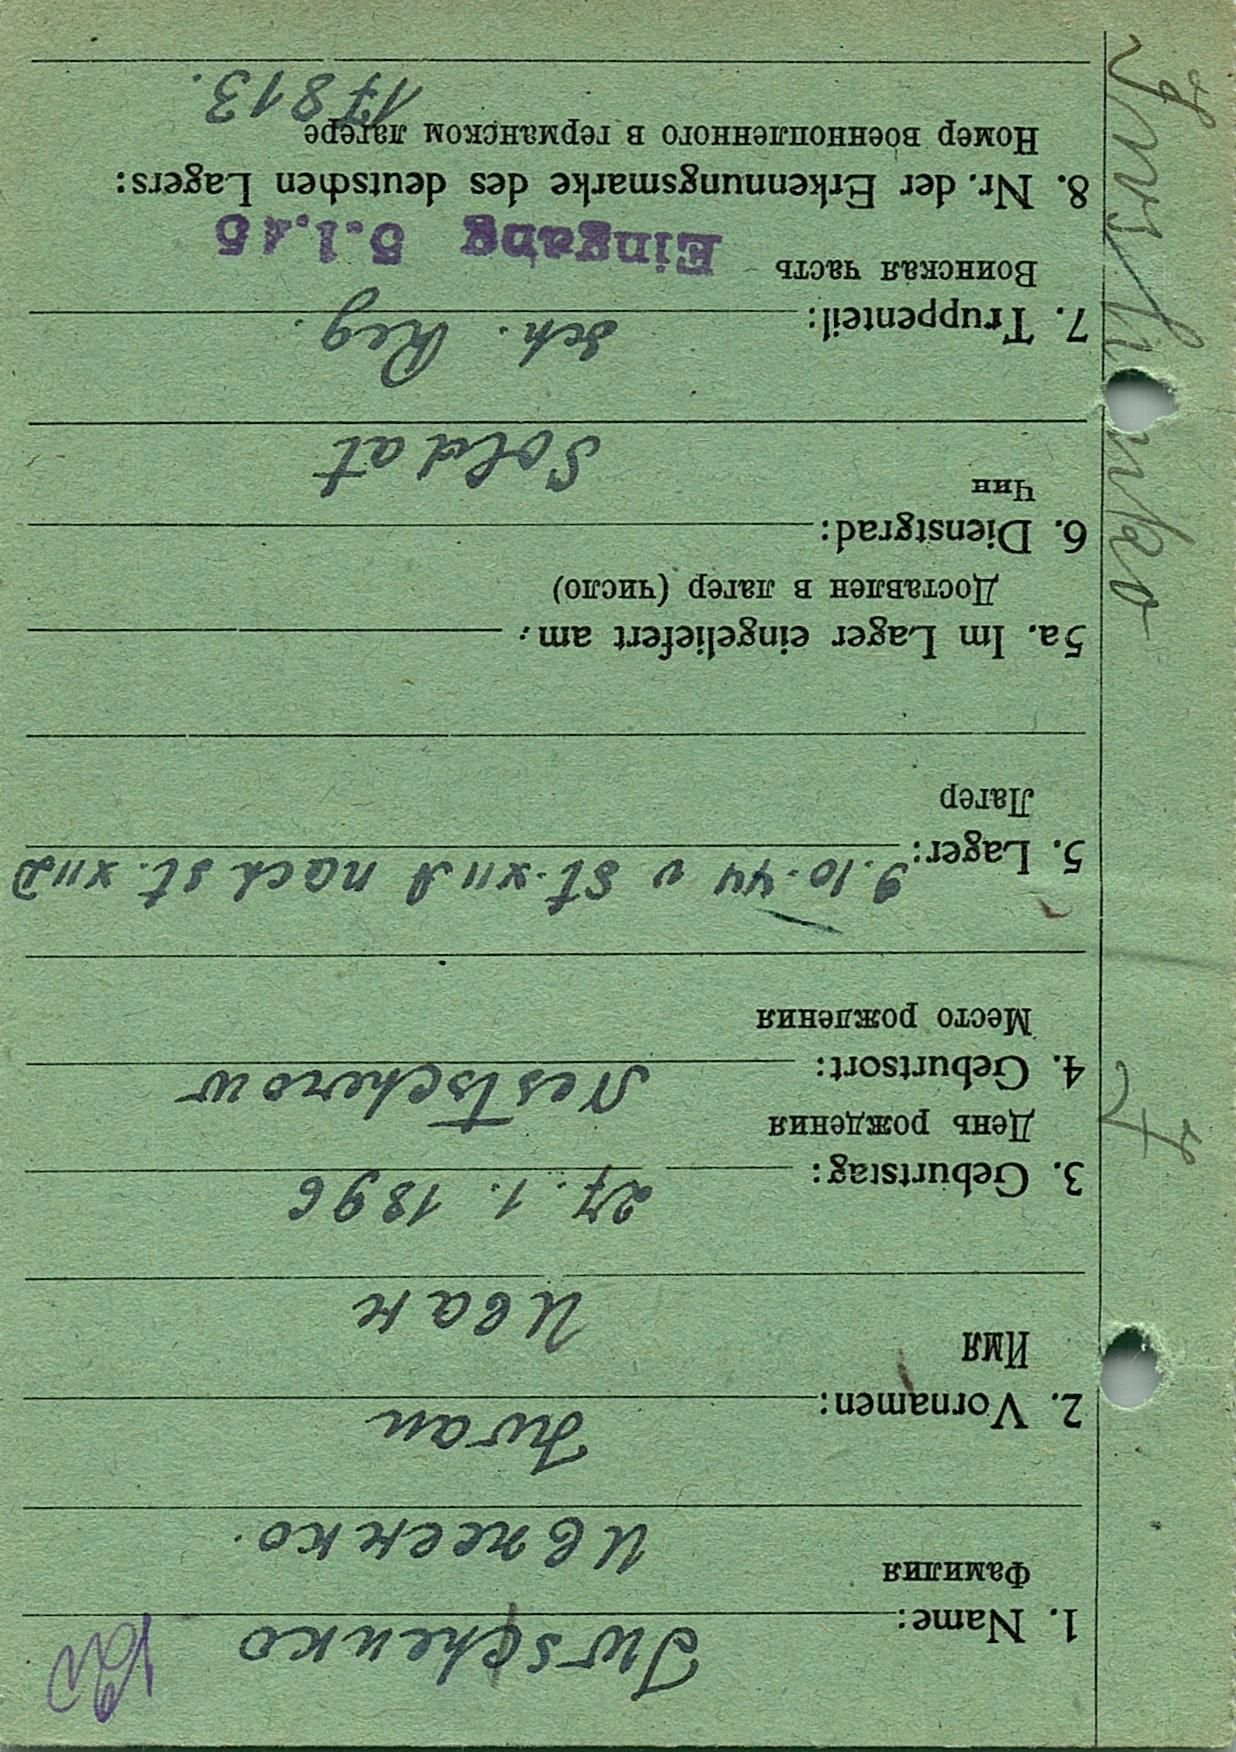 1. Name: Iwschenko
Фамилия Ивженко.
2. Vornamen: Iwan
Имя Иван
3. Geburtstag: 27. 1. 1896
День рождения
4. Geburtsort: Nestscherow
Место рождения
5. Lager: 9.10.44 v St. XII A nach St. XII D
Лагер
5a. Im Lager eingeliefert am:
Доставлен в лагер (число)
6. Dienstgrad:
Чин Soldat
7. Truppenteil: Sch. Reg.
Воинская часть Eingang 5.1.45
8. Nr. der Erkennungsmarke des deutschen Lagers:
Номер военнопленного в германском лагере
17813.